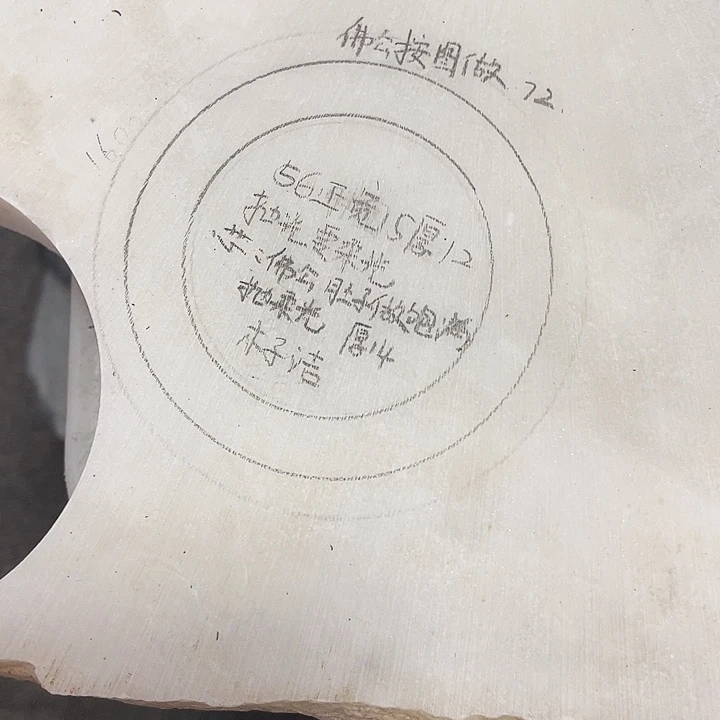 佛公按图做 72.
160
56正 15厚12
抛光要柔光
佛公肚子做饱满
抛柔光 厚14
木子洁